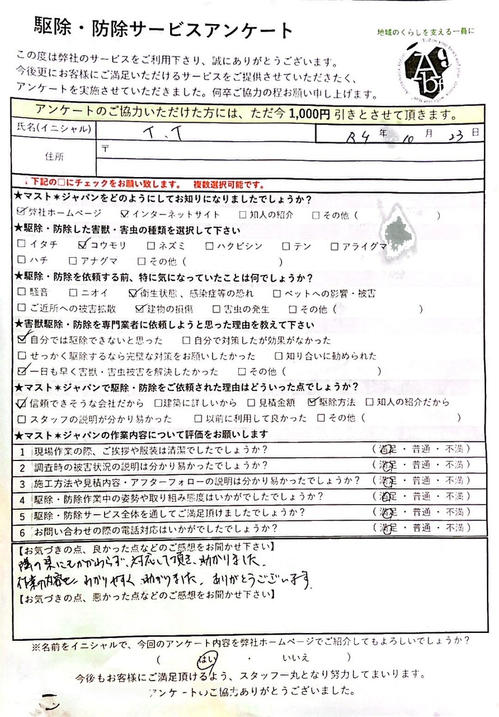 駆除・防除サービスアンケート
地域のくらしを支える一員に
この度は弊社のサービスをご利用下さり、誠にありがとうございます。
今後更にお客様にご満足いただけるサービスをご提供させていただきたく、
アンケートを実施させていただきました。何卒ご協力の程お願い申し上げます。
アンケートのご協力いただけた方には、ただ今1,000円引きとさせて頂きます。
氏名(イニシャル) T.T R4年10月23日
住所 〒
↓下記の□にチェックをお願い致します。 複数選択可能です。
★マスト＊ジャパンをどのようにしてお知りになりましたでしょうか?
☑弊社ホームページ ☑インターネットサイト □知人の紹介 □その他( )
★駆除・防除した害獣・害虫の種類を選択して下さい
□イタチ ☑コウモリ □ネズミ □ハクビシン □テン □アライグマ
□ハチ □アナグマ □その他( )
★駆除・防除を依頼する前、特に気になっていたことは何でしょうか?
□騒音 □ニオイ ☑衛生状態、感染症等の恐れ □ペットへの影響・被害
□ご近所への被害拡散 ☑建物の損傷 □害虫の発生 □その他( )
★害獣駆除・防除を専門業者に依頼しようと思った理由を教えて下さい
☑自分では駆除できないと思った □自分で対策したが効果がなかった
□せっかく駆除するなら完璧な対策をお願いしたかった □知り合いに勧められた
☑一日も早く害獣・害虫被害を解決したかった □その他( )
★マスト＊ジャパンで駆除・防除をご依頼された理由はどういった点でしょうか?
☑信頼できそうな会社だから □建築に詳しいから □見積金額 ☑駆除方法 □知人の紹介だから
□スタッフの説明が分かり易かった □以前に利用して良かった □その他( )
★マスト＊ジャパンの作業内容について評価をお願いします
1 現場作業の際、ご挨拶や服装は清潔でしたでしょうか? (満足・普通・不満)
2 調査時の被害状況の説明は分かり易かったでしょうか? (満足・普通・不満)
3 施工方法や見積内容・アフターフォローの説明は分かり易かったでしょうか? (満足・普通・不満)
4 駆除・防除作業中の姿勢や取り組み態度はいかがでしたでしょうか? (満足・普通・不満)
5 駆除・防除サービス全体を通してご満足頂けましたでしょうか? (満足・普通・不満)
6 お問い合わせの際の電話対応はいかがでしたでしょうか? (満足・普通・不満)
【お気づきの点、良かった点などのご感想をお聞かせ下さい】
にもかかわらず、対応して頂き、助かりました。
作業の内容もわかりやすく助かりました。ありがとうございます。
【お気づきの点、悪かった点などのご感想をお聞かせ下さい】
※名前をイニシャルで、今回のアンケート内容を弊社ホームページでご紹介してもよろしいでしょうか?
( はい ・ いいえ )
今後もお客様にご満足頂けるよう、スタッフ一丸となり努力してまいります。
アンケートのご協力ありがとうございました。